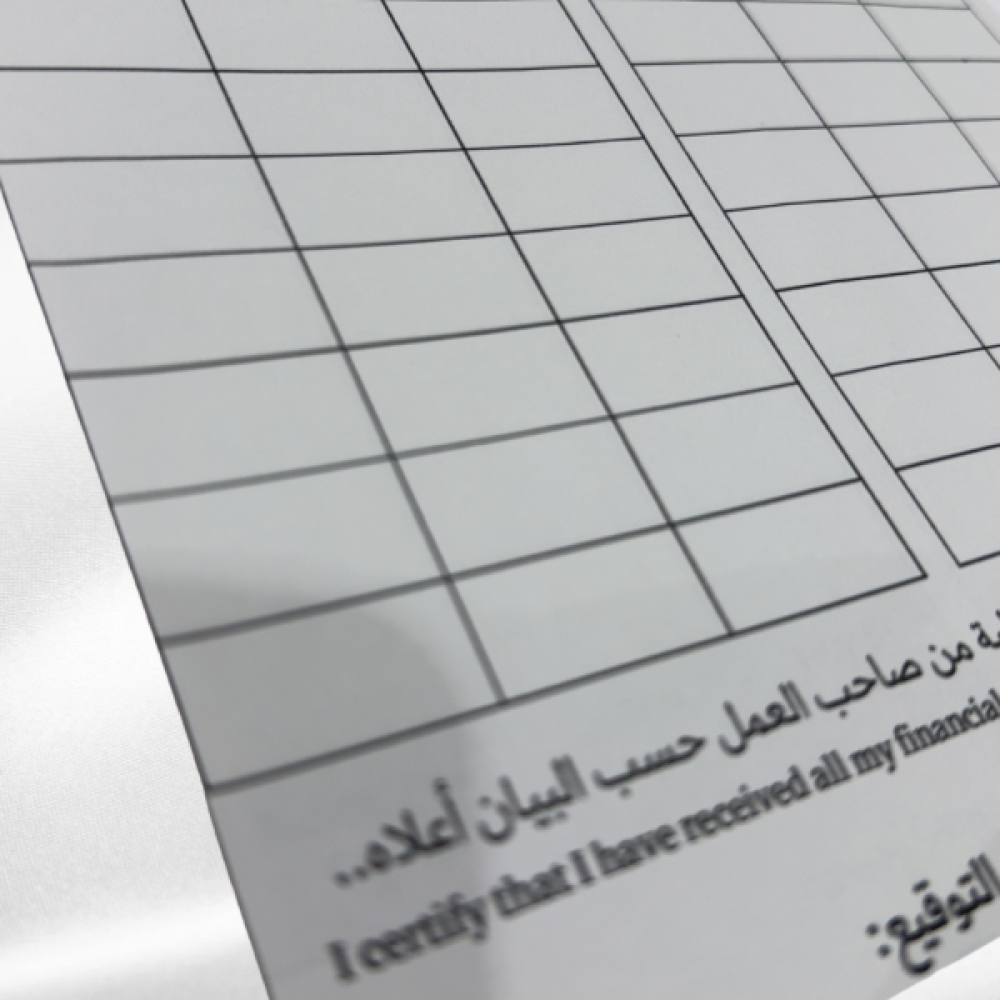 من صاحب العمل حسب البيان أعلاه..
I certify that I have received all my financial
التوقيع: